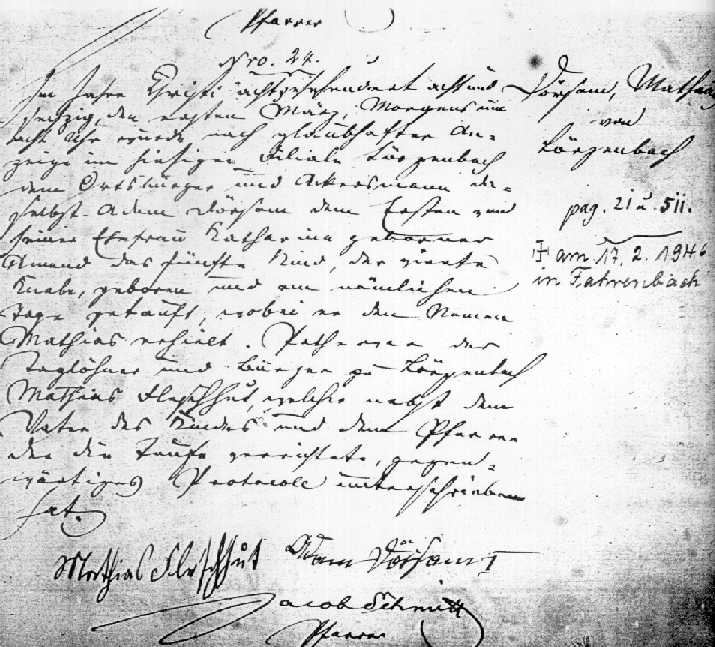 Pfarrer
Nro. 24.
Im Jahre Christi achtzehnhundert acht und
sechzig, den ersten März Morgens um
acht Uhr wurde nach glaubhafter An-
zeige im hiesigen Filiale Lörzenbach
dem Ortsbürger und Ackersmann da-
selbst Adam Dörsam dem Ersten und
seiner Ehefrau Katharina geborener
Amend das fünfte Kind, der vierte
Knabe, geboren und am nämlichen
Tage getauft, wobei er den Namen
Mathias erhielt. Pathe war der
Taglöhner und Bürger zu Lörzenbach
Mathias Fleschhut, welcher nebst dem
Vater des Kindes und dem Pfarrer
der die Taufe verrichtete, gegen-
wärtiges Protocoll unterschrieben
hat.
Mathias Fleschhut Adam Dörsam I
Jacob Schmitt
Pfarrer
Dörsam, Mathias
von
Lörzenbach
pag. 21 u. 511.
† am 17. 2. 1946
in Fahrenbach